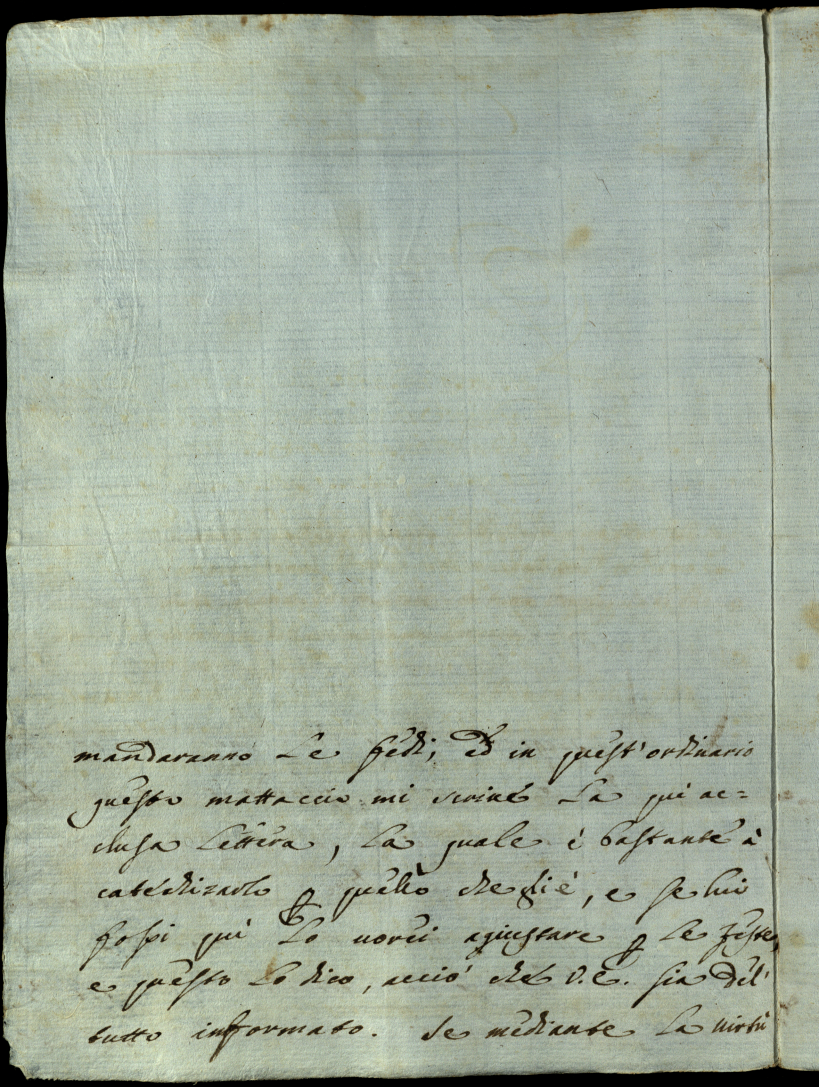 mandaranno Le fedi; ed in quest'ordinario
questo mattaccio mi scrive La qui ac=
clusa Lettera, La quale è bastante à
catechizarlo p quello che gli è, e se lui
fossi quì Lo vorei agiustare p Le feste,
e questo Lo dico, acciò che V.E. sia del'
tutto informato. Se mediante La virtù